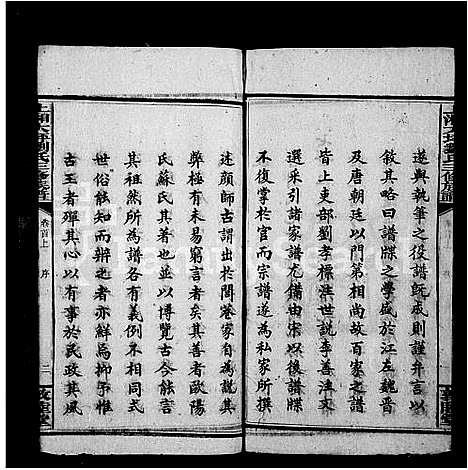 遂與執筆之役譜既成則謹弁言以
敘其略曰譜牒之學盛於江左魏晉
及唐朝廷以門第相尚故百家之譜
皆上吏部劉孝標注世說李善注文
選采引諸家譜尤備由宋以後譜牒
不復掌於官而宗譜遂為私家所撰
述顏師古謂出於閭巷家自為說其
弊極有未易窮言者矣其善者歐陽
氏蘇氏其著也並以博覽古今能言
其本原然所為譜各有義例不相同式
世俗能知而辨之者亦鮮焉抑予惟
古王者殫其心以有為於民政其風
卷首上
序
二
敦睦堂